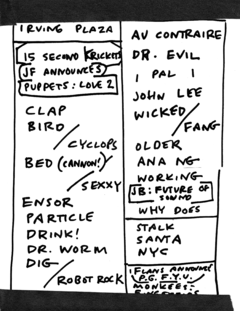 IRVING PLAZA
15 SECOND KRICKETS
JF ANNOUNCES
PUPPETS: LOVE 2
CLAP
BIRD
/CYCLOPS
BED (CANNON!)
/SEXXY
ENSOR
PARTICLE
DRINK!
DR. WORM
DIG
/ROBOT ROCK
AU CONTRAIRE
DR. EVIL
1 PAL 1
JOHN LEE
WICKED
/FANG
OLDER
ANA NG
WORKING
JB: FUTURE OF
SOUND
WHY DOES
STALK
SANTA
NYC
P.G. F.Y.U.
MONKEES: